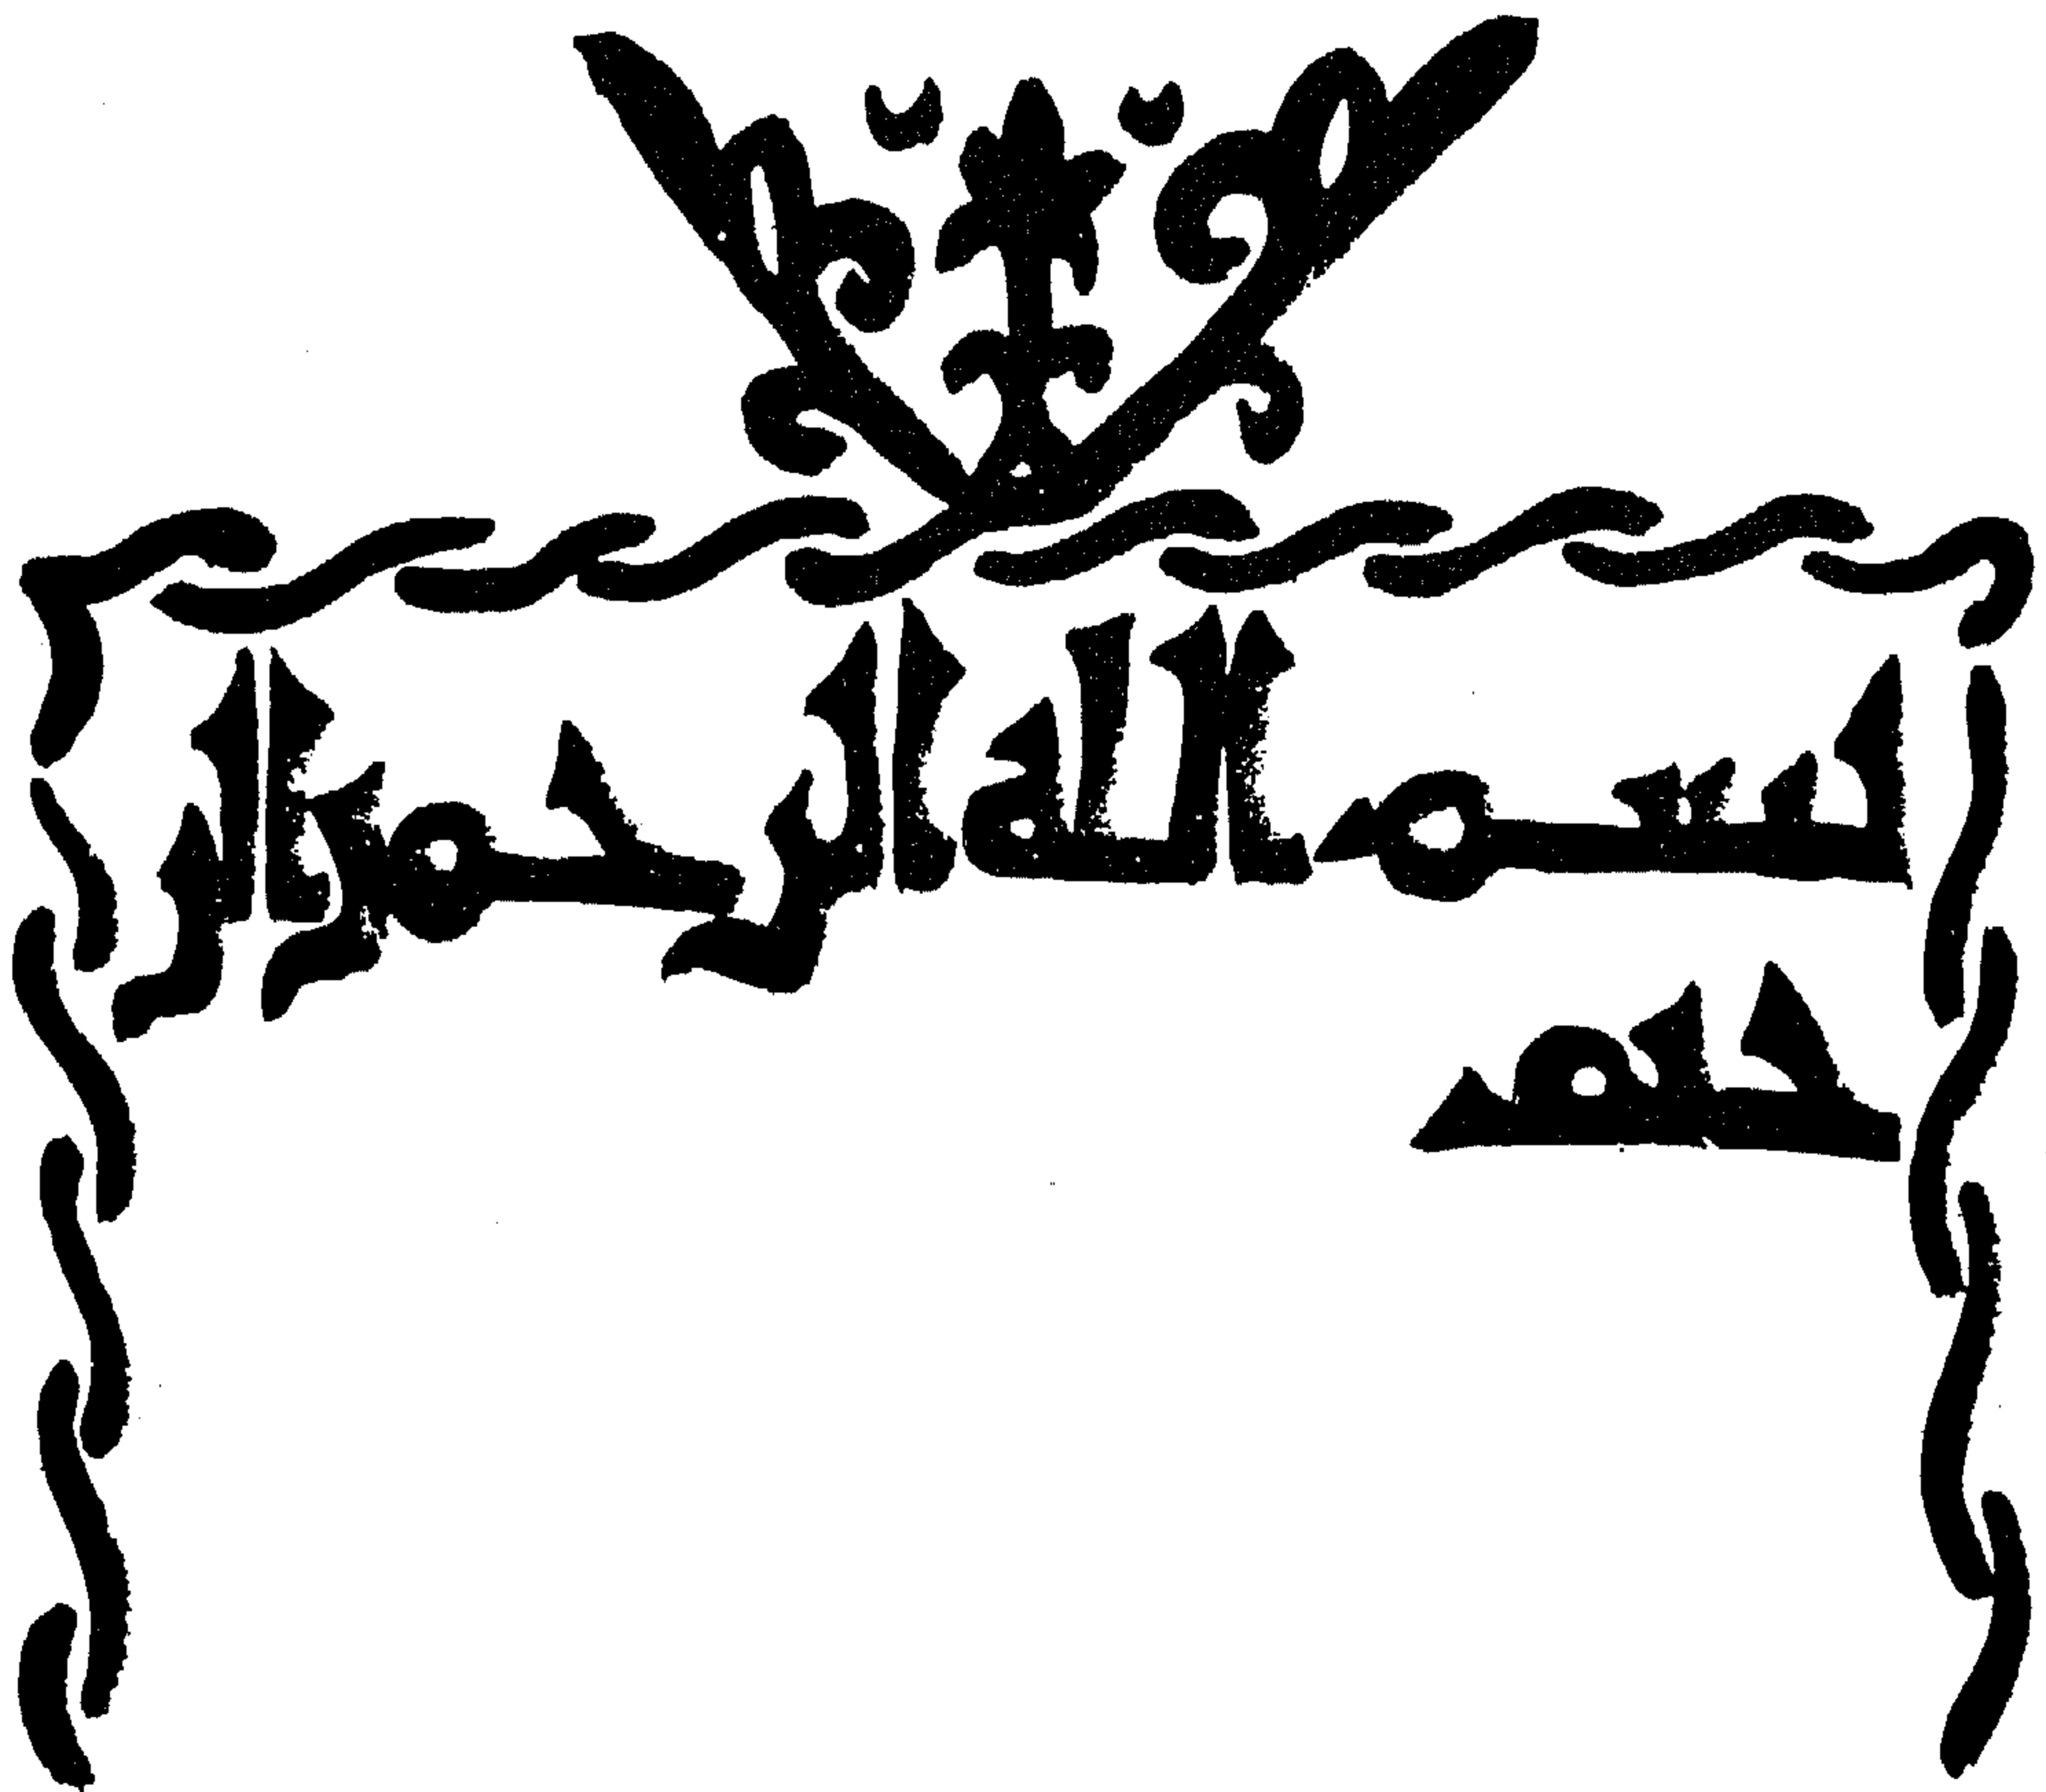 بسم الله الرحمن الر
حيم